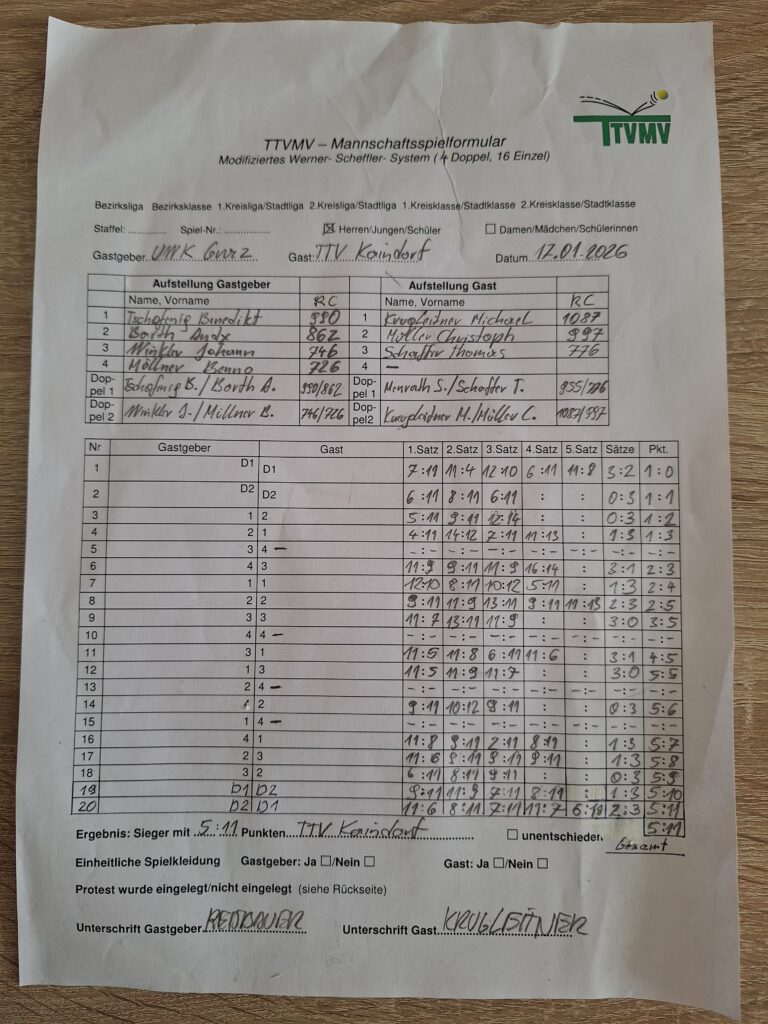 TTVMV
TTVMV – Mannschaftsspielformular
Modifiziertes Werner- Scheffler- System ( 4 Doppel, 16 Einzel)
Bezirksliga Bezirksklasse 1.Kreisliga/Stadtliga 2.Kreisliga/Stadtliga 1.Kreisklasse/Stadtklasse 2.Kreisklasse/Stadtklasse
Staffel: ............ Spiel-Nr.: ............... ☒ Herren/Jungen/Schüler ☐ Damen/Mädchen/Schülerinnen
Gastgeber: UWK Gurz Gast: TTV Kaindorf Datum: 17.01.2026
Aufstellung Gastgeber Aufstellung Gast
Name, Vorname RC Name, Vorname RC
1 Tschofenig Benedikt 990 1 Krugleitner Michael 1087
2 Barth Andy 862 2 Müller Christoph 997
3 Winkler Johann 746 3 Schaffer Thomas 776
4 Möllner Benno 726 4 —
Doppel 1 Tschofnig B./Barth A. 990/862 Doppel 1 Menrath S./Schaffer T. 955/776
Doppel 2 Winkler J./Müllner B. 746/726 Doppel2 Krugleitner M./Müller C. 1087/997
Nr Gastgeber Gast 1.Satz 2.Satz 3.Satz 4.Satz 5.Satz Sätze Pkt.
1 D1 D1 7:11 11:4 12:10 6:11 11:8 3:2 1:0
2 D2 D2 6:11 8:11 6:11 : : 0:3 1:1
3 1 2 5:11 9:11 12:14 : : 0:3 1:2
4 2 1 4:11 14:12 7:11 11:13 : 1:3 1:3
5 3 4 — -:- -:- -:- -:- -:- -:- -:-
6 4 3 11:9 9:11 11:9 16:14 : 3:1 2:3
7 1 1 12:10 8:11 10:12 5:11 : 1:3 2:4
8 2 2 9:11 11:9 13:11 9:11 11:13 2:3 2:5
9 3 3 11:7 13:11 11:9 : : 3:0 3:5
10 4 4 — -:- -:- -:- -:- -:- -:- -:-
11 3 1 11:5 11:8 6:11 11:6 : 3:1 4:5
12 1 3 11:5 11:9 11:7 : : 3:0 5:5
13 2 4 — -:- -:- -:- -:- -:- -:- -:-
14 4 2 9:11 10:12 9:11 : : 0:3 5:6
15 1 4 — -:- -:- -:- -:- -:- -:- -:-
16 4 1 11:8 9:11 2:11 8:11 : 1:3 5:7
17 2 3 11:6 9:11 9:11 9:11 : 1:3 5:8
18 3 2 6:11 8:11 9:11 : : 0:3 5:9
19 D1 D2 9:11 11:9 7:11 8:11 : 1:3 5:10
20 D2 D1 11:6 8:11 7:11 11:7 2:3 5:11
5:11
Ergebnis: Sieger mit 5:11 Punkten TTV Kaindorf ☐ unentschieden Gesamt
Einheitliche Spielkleidung Gastgeber: Ja ☐/Nein ☐ Gast: Ja ☐/Nein ☐
Protest wurde eingelegt/nicht eingelegt (siehe Rückseite)
Unterschrift Gastgeber Unterschrift Gast KRUGLEITNER